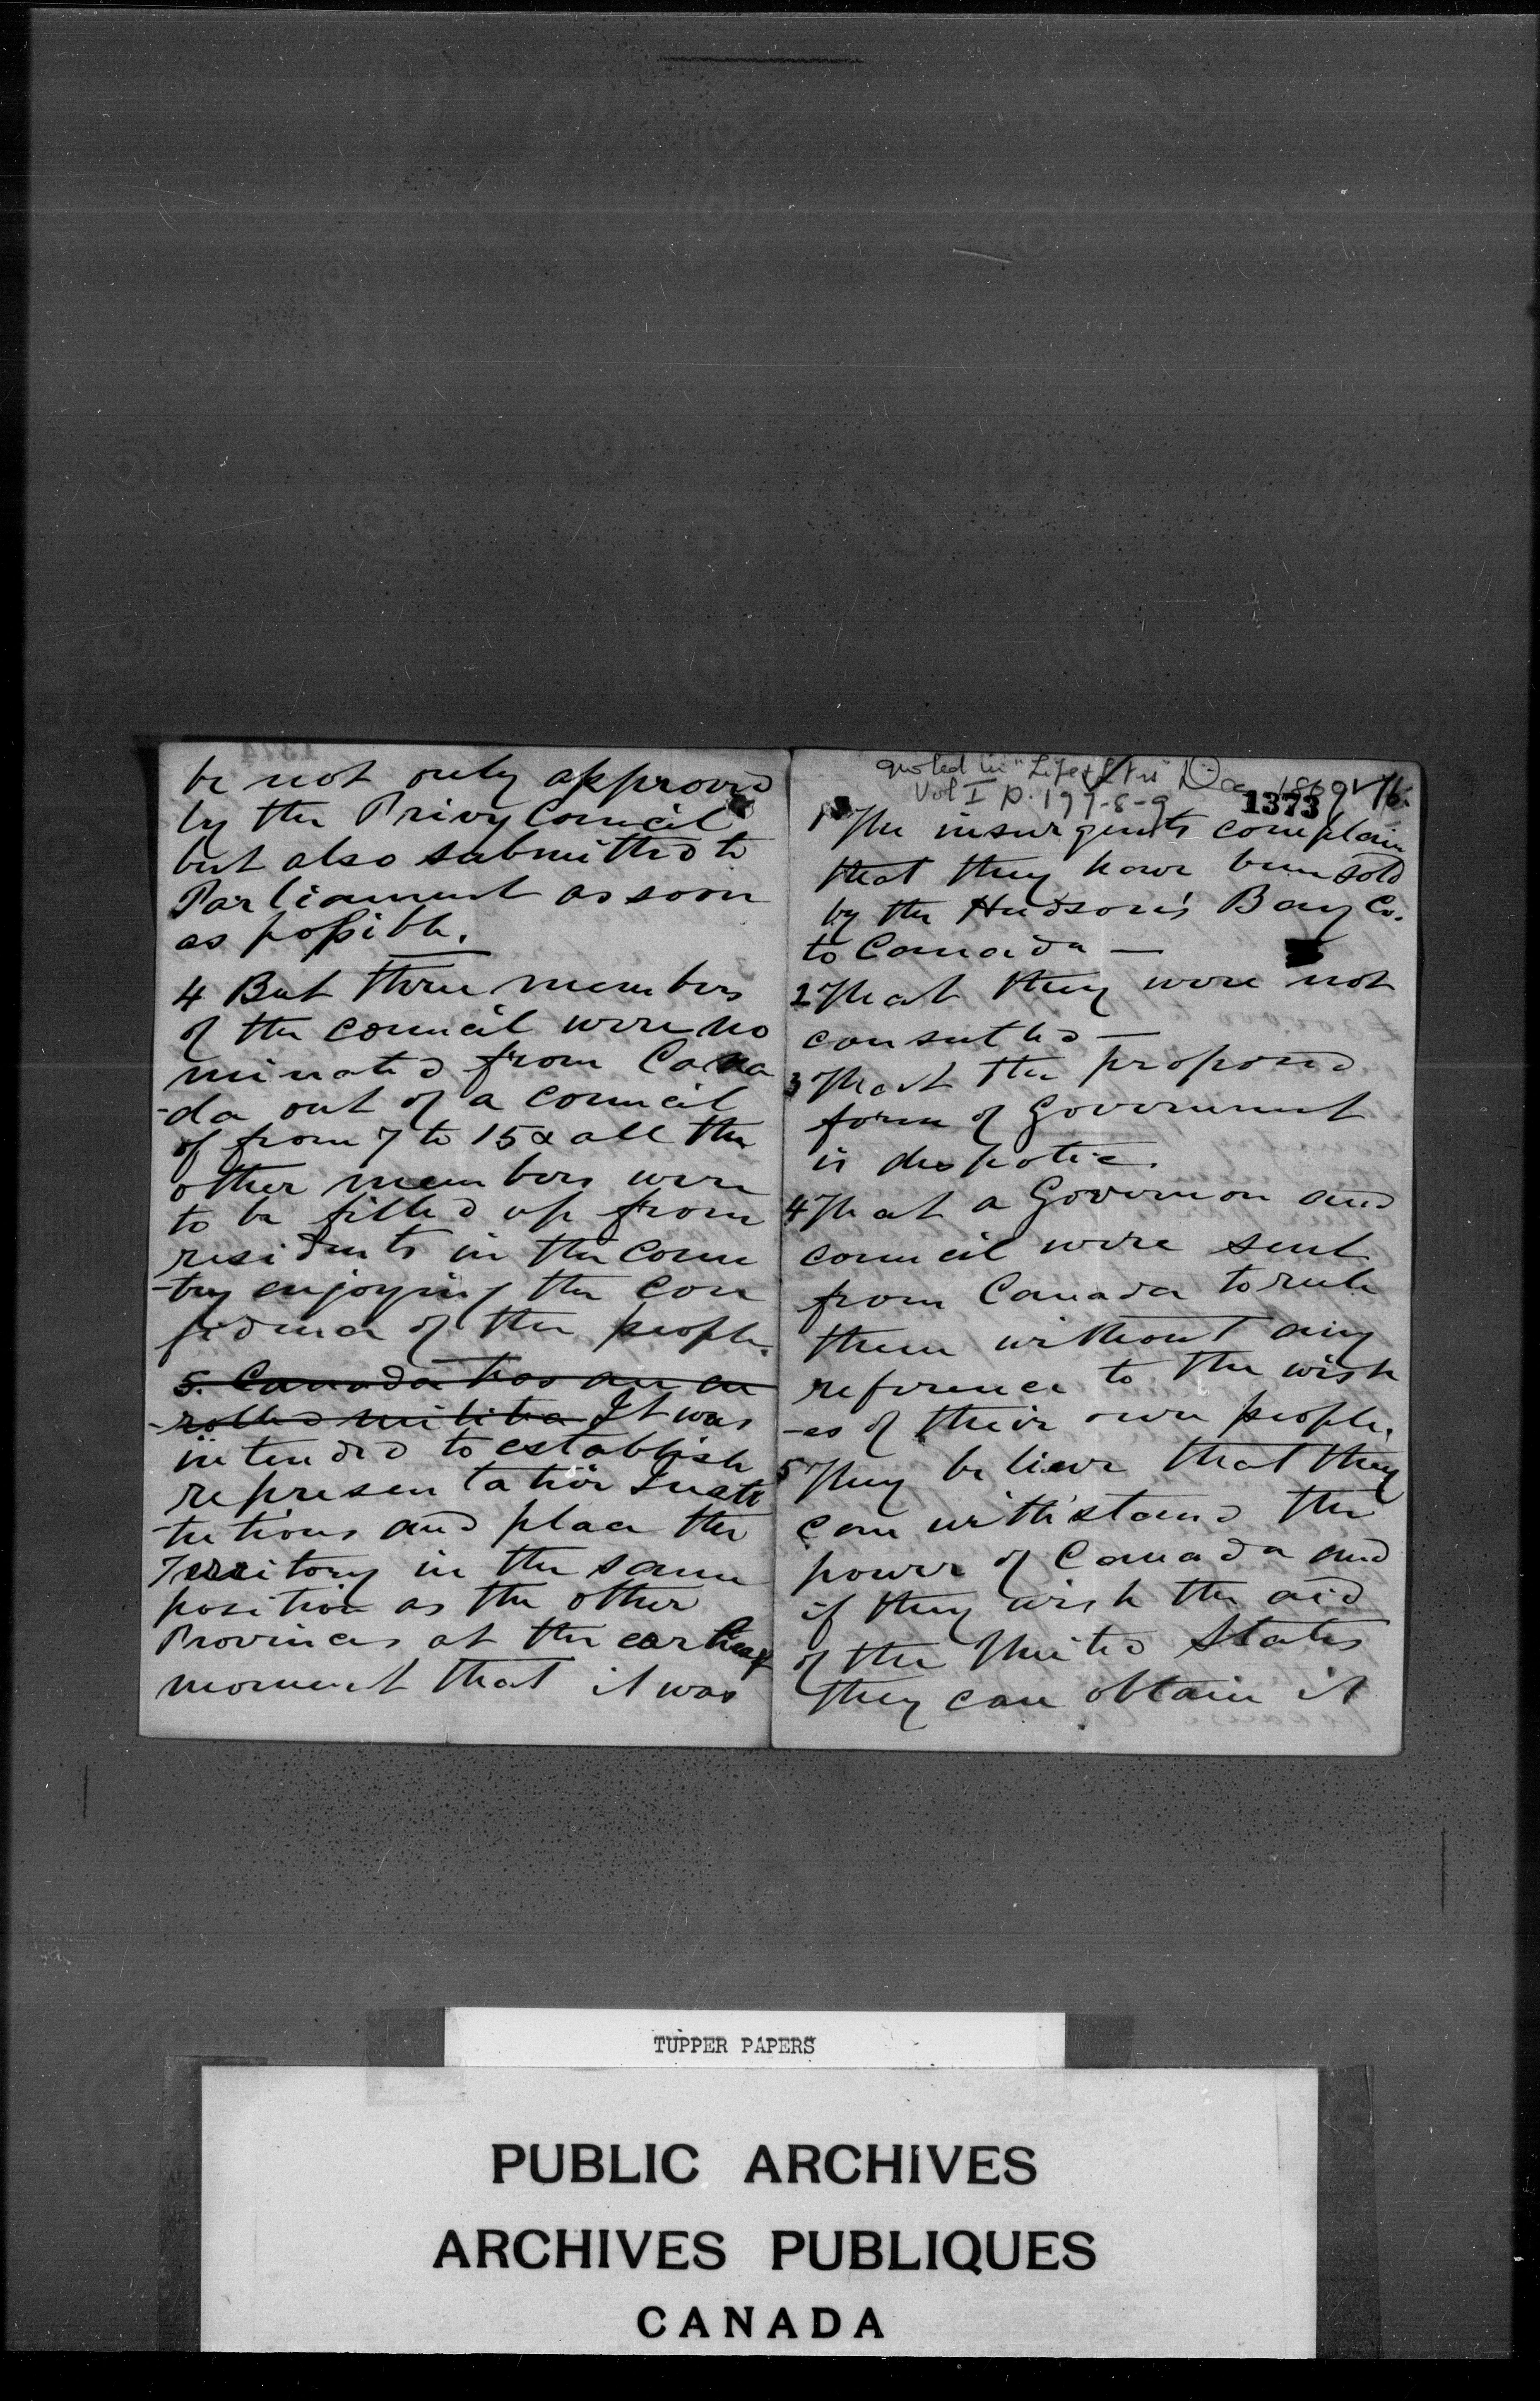 be not only approved
by the Privy Council
but also submitted to
Parliament as soon
as possible.
4 But three members
of the council were no
minated from Cana
-da out of a council
of from 7 to 15 & all the
other members were
to be filled up from
residents in the coun
-try enjoying the con
fidence of the people.
5. Canada has an en
-rolled militia It was
intended to establish
representative Insti
-tutions and place the
Territory in the same
position as the other
Provinces at the earliest
moment that it was
quoted in "Life & Ltrs" Dec 1869
Vol I p. 197-8-9
1373
1 The insurgents complain
that they have been sold
by the Hudson's Bay Co.
to Canada —
2 That they were not
consulted —
3 That the proposed
form of Government
is despotic.
4 That a Governor and
council were sent
from Canada to rule
them without any
reference to the wish
-es of their own people.
5 They believe that they
can withstand the
power of Canada and
if they wish the aid
of the United States
they can obtain it
TUPPER PAPERS
PUBLIC ARCHIVES
ARCHIVES PUBLIQUES
CANADA